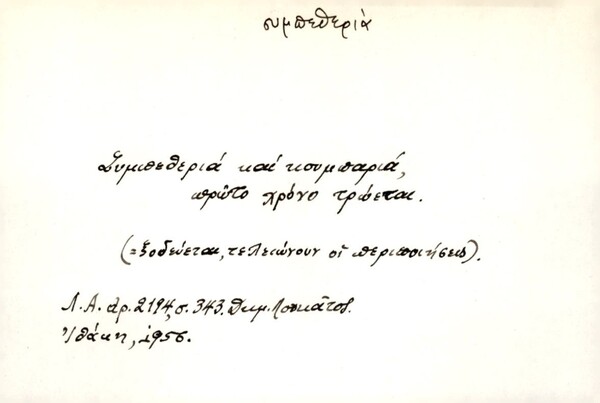 συμπεθεριά
Συμπεθεριά καί κουμπαριά,
πρῶτο χρόνο τρώεται.
(=ξοδεύεται, τελειώνουν οἱ περιποιήσεις).
Λ.Α. ἀρ. 2194, σ. 343. Δημ. Λουκᾶτος.
Ἰθάκη, 1956.